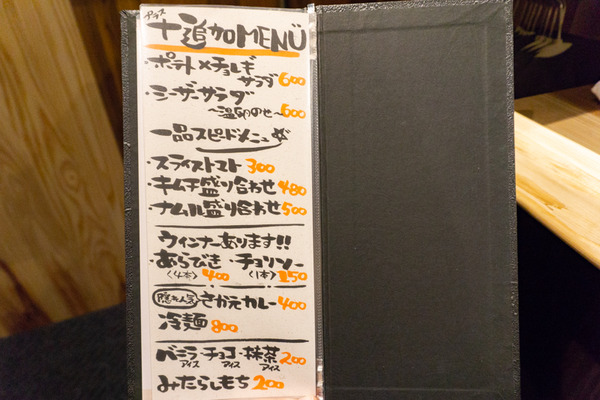 プラス
+追加MENU
・ポテト×チョレギ
サラダ 600
・シーザーサラダ
〜温卵のせ〜 600
一品スピードメニュー
・スライストマト 300
・キムチ盛り合わせ 480
・ナムル盛り合わせ 500
ウィンナーあります!!
・あらびき ・チョリソー
〈4本〉 400 〈1本〉 150
隠れ人気 さかえカレー 400
冷麺 800
バニラ・チョコ・抹茶 200
アイス アイス アイス
みたらしもち 200